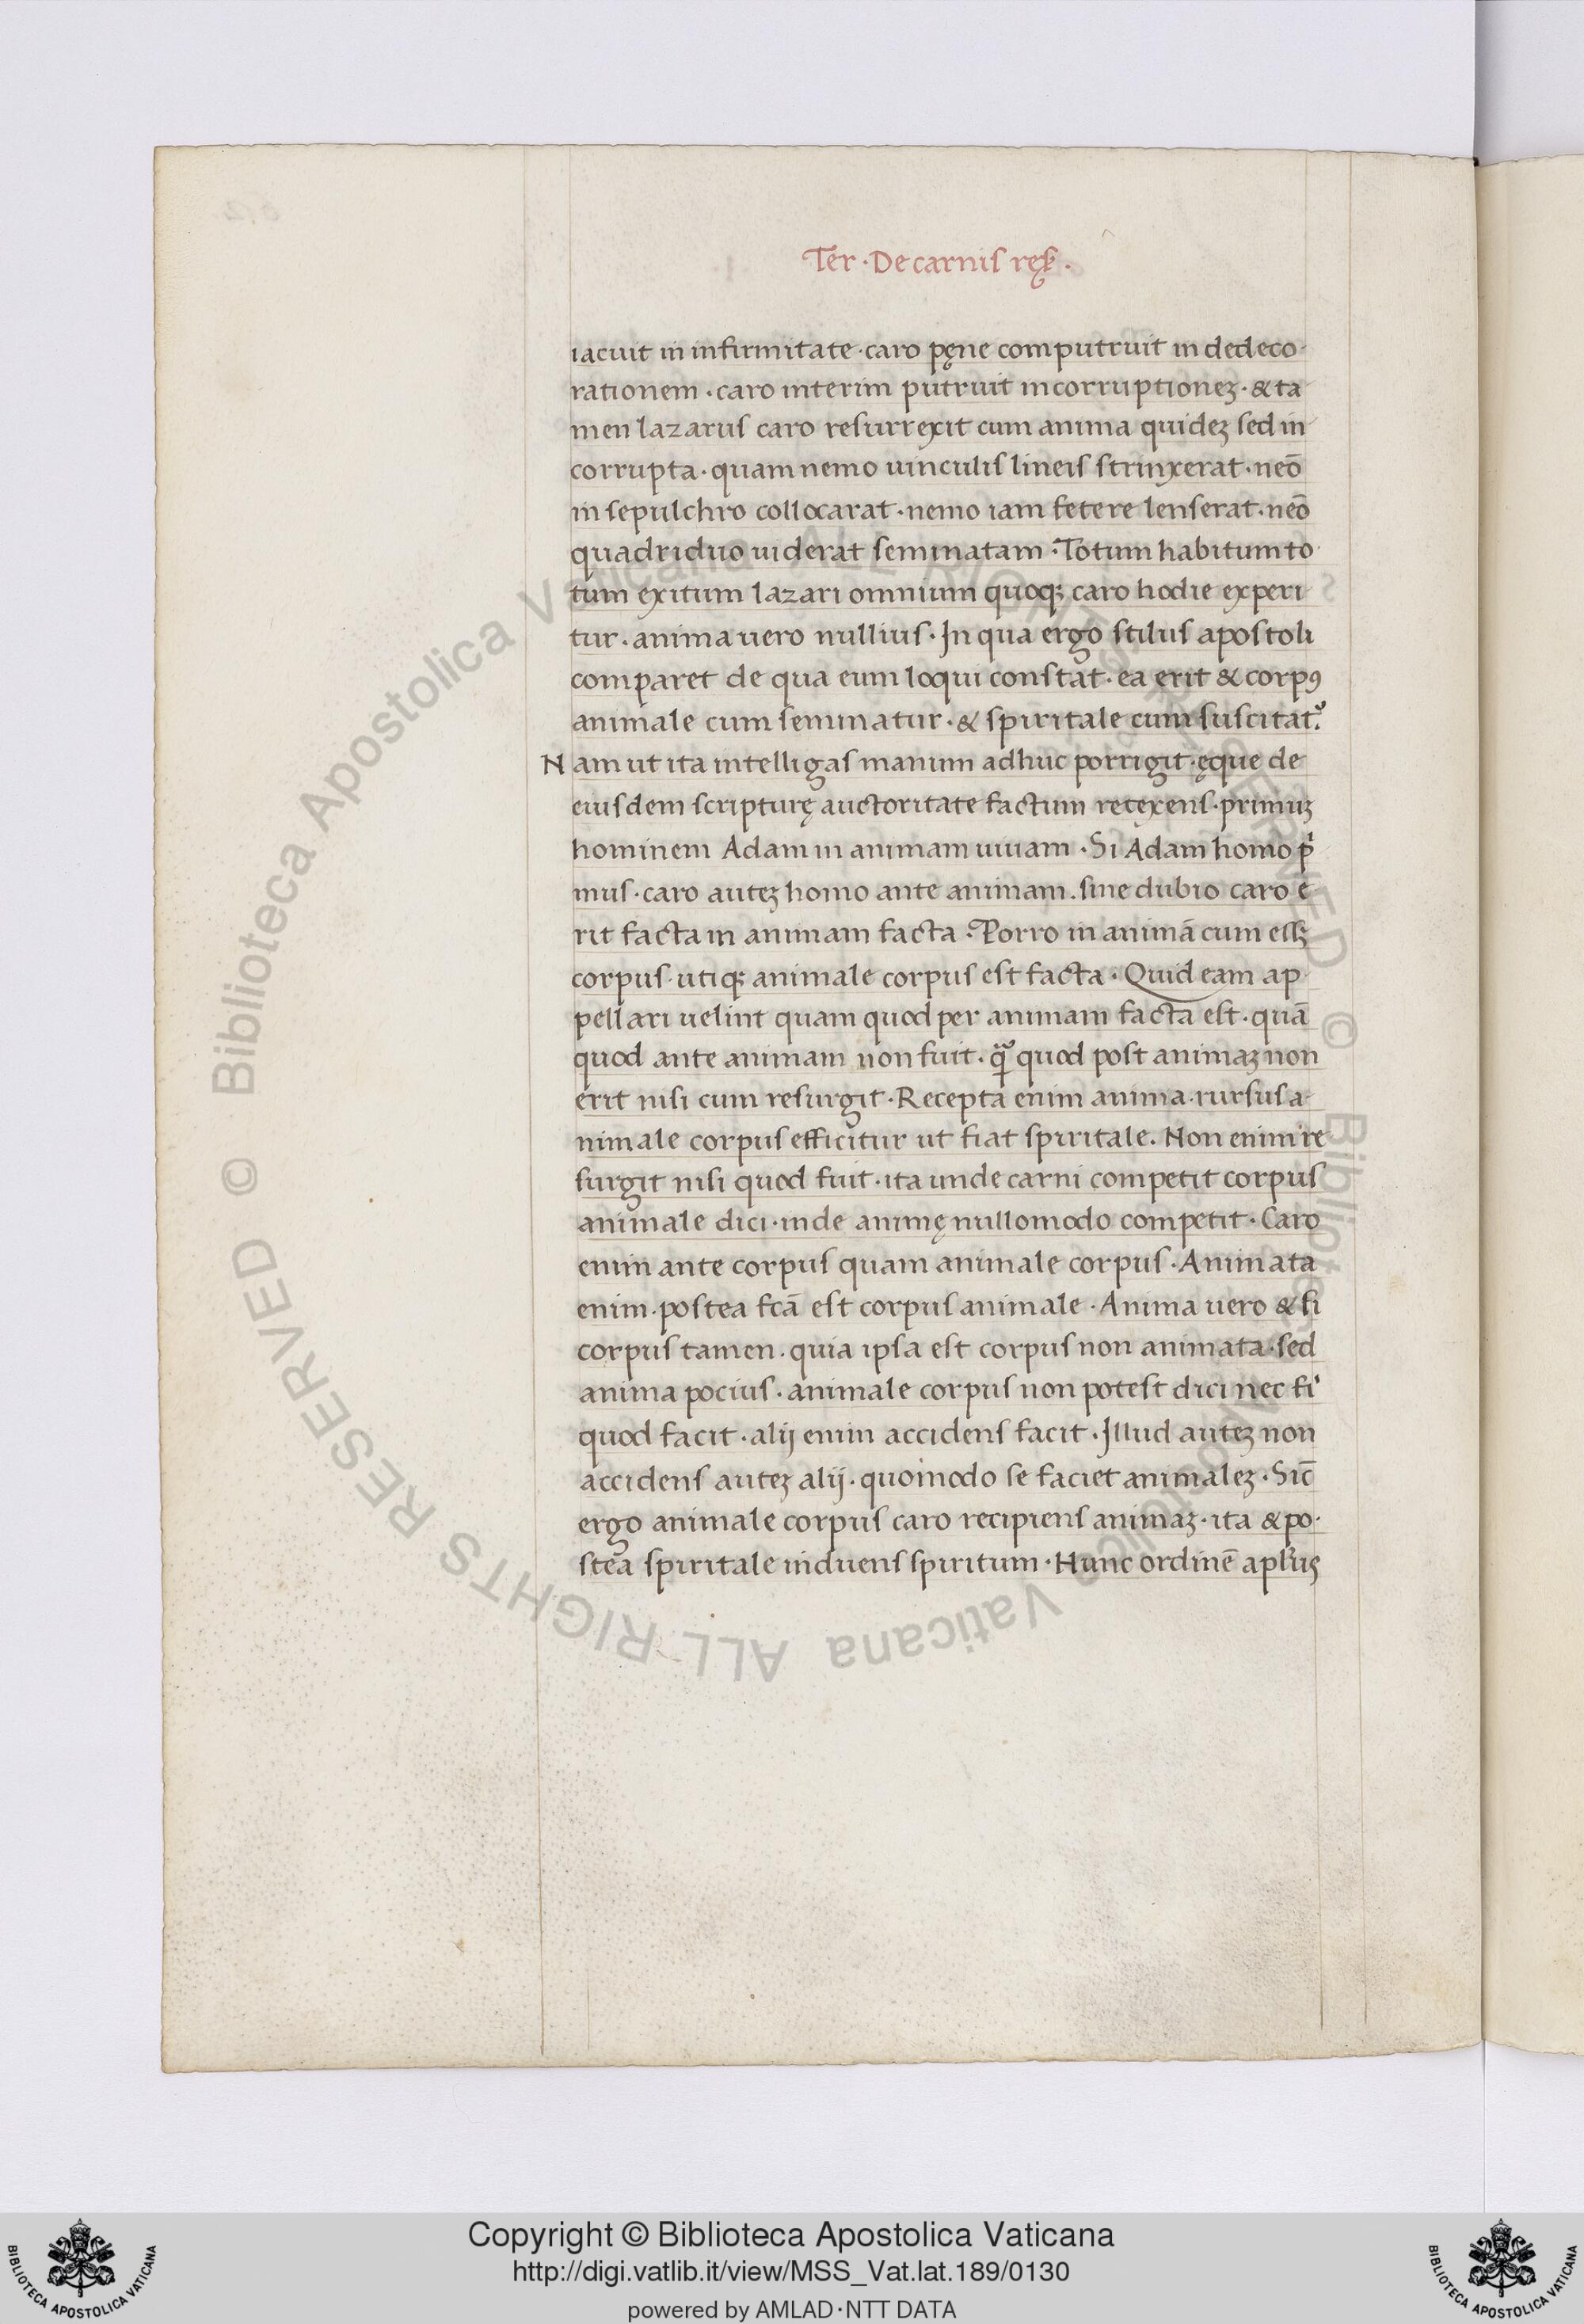 Ter · De carnis reꝭ ·
iacuit in infirmitate · caro pęne computruit in dedeco
rationem · caro interim putruit in corruptioneꝫ · & ta
men lazarus caro resurrexit cum anima quideꝫ sed in
corrupta · quam nemo uinculis lineis strinxerat · neō
in sepulchro collocarat · nemo iam fetere senserat · neō
quadriduo uiderat seminatam · Totum habitum to
tum exitum lazari omnium quoqꝫ caro hodie experi
tur · anima uero nullius · In qua ergo stilus apostoli
comparet de qua eum loqui constat · ea erit & corpꝰ
animale cum seminatur · & spiritale cum suscitat᷑.
Nam ut ita intelligas manum adhuc porrigit · ęque de
eiusdem scripturę auctoritate factum retexens · primuꝫ
hominem Adam in animam uiuam · Si Adam homo pͥ
mus · caro auteꝫ homo ante animam · sine dubio caro e
rit facta in animam facta · Porro in animā cum essꝫ
corpus · utiqꝫ animale corpus est facta · Quid eam ap
pellari uelint quam quod per animam facta est · quā
quod ante animam non fuit · qᷓ quod post animaꝫ non
erit nisi cum resurgit · Recepta enim anima · rursus a
nimale corpus efficitur ut fiat spiritale. Non enim re
surgit nisi quod fuit · ita unde carni competit corpus
animale dici · inde animę nullomodo competit · Caro
enim ante corpus quam animale corpus · Animata
enim · postea fcā est corpus animale · Anima uero & si
corpus tamen · quia ipsa est corpus non animata · sed
anima pocius · animale corpus non potest dici nec fi
quod facit · alij enim accidens facit · Illud auteꝫ non
accidens auteꝫ alij · quomodo se faciet animaleꝫ · Sic̄
ergo animale corpus caro recipiens animaꝫ · ita & po
stea spiritale induens spiritum · Hunc ordinē apl'us
© Biblioteca Apostolica Vaticana ALL RIGHTS RESERVED © Biblioteca Apostolica Vaticana ALL RIGHTS RESERVED
Copyright © Biblioteca Apostolica Vaticana
http://digi.vatlib.it/view/MSS_Vat.lat.189/0130
powered by AMLAD·NTT DATA
BIBLIOTECA APOSTOLICA VATICANA
BIBLIOTECA APOSTOLICA VATICANA